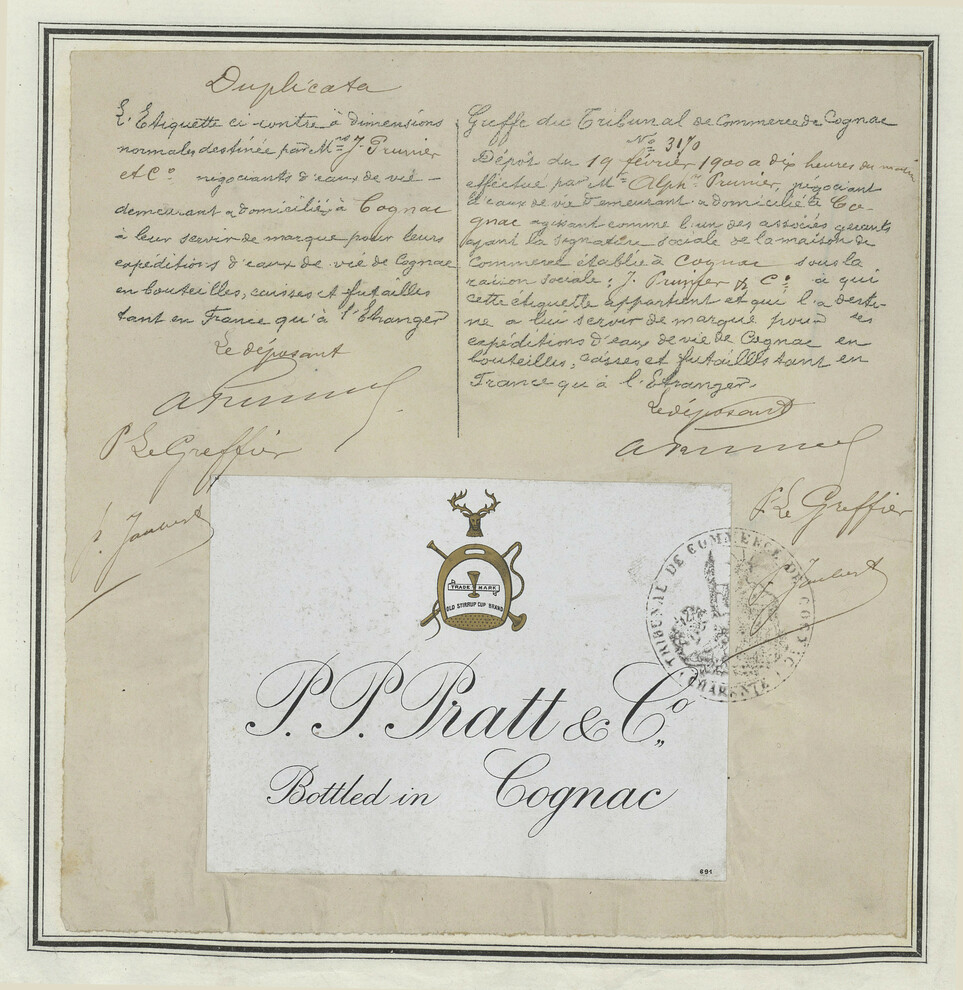 Duplicata
L'Etiquette ci-contre à dimensions
normales destinée par Mrs J. Prunier
et Co négociants d'eaux de vie
demeurant & domiciliés à Cognac
à leur servir de marque pour leurs
expéditions d'eaux de vie de Cognac
en bouteilles, caisses et futailles
tant en France qu'à l'Etranger
Le déposant
A Prunier
P Le Greffier
P. Joubert
Greffe du Tribunal de Commerce de Cognac
No 3170
Dépôt du 19 février 1900 a dix heures du matin
effectué par Mr Alphse Prunier, négociant
d'eaux de vie demeurant & domicilié à Co-
gnac agissant comme l'un des associés gérants
ayant la signature sociale de la maison de
Commerce établie à Cognac sous la
raison sociale: J. Prunier & Co à qui
cette étiquette appartient et qui l'a desti-
né a lui servir de marque pour ses
expéditions d'eaux de vie de Cognac en
bouteilles, caisses et futailles tant en
France qu'à l'Etranger.
Le déposant
A Prunier
P. Le Greffier
Joubert
TRIBUNAL DE COMMERCE DE COGNAC
CHARENTE
TRADE MARK
OLD STIRRUP CUP BRAND
P. P. Pratt & Co
Bottled in Cognac
691